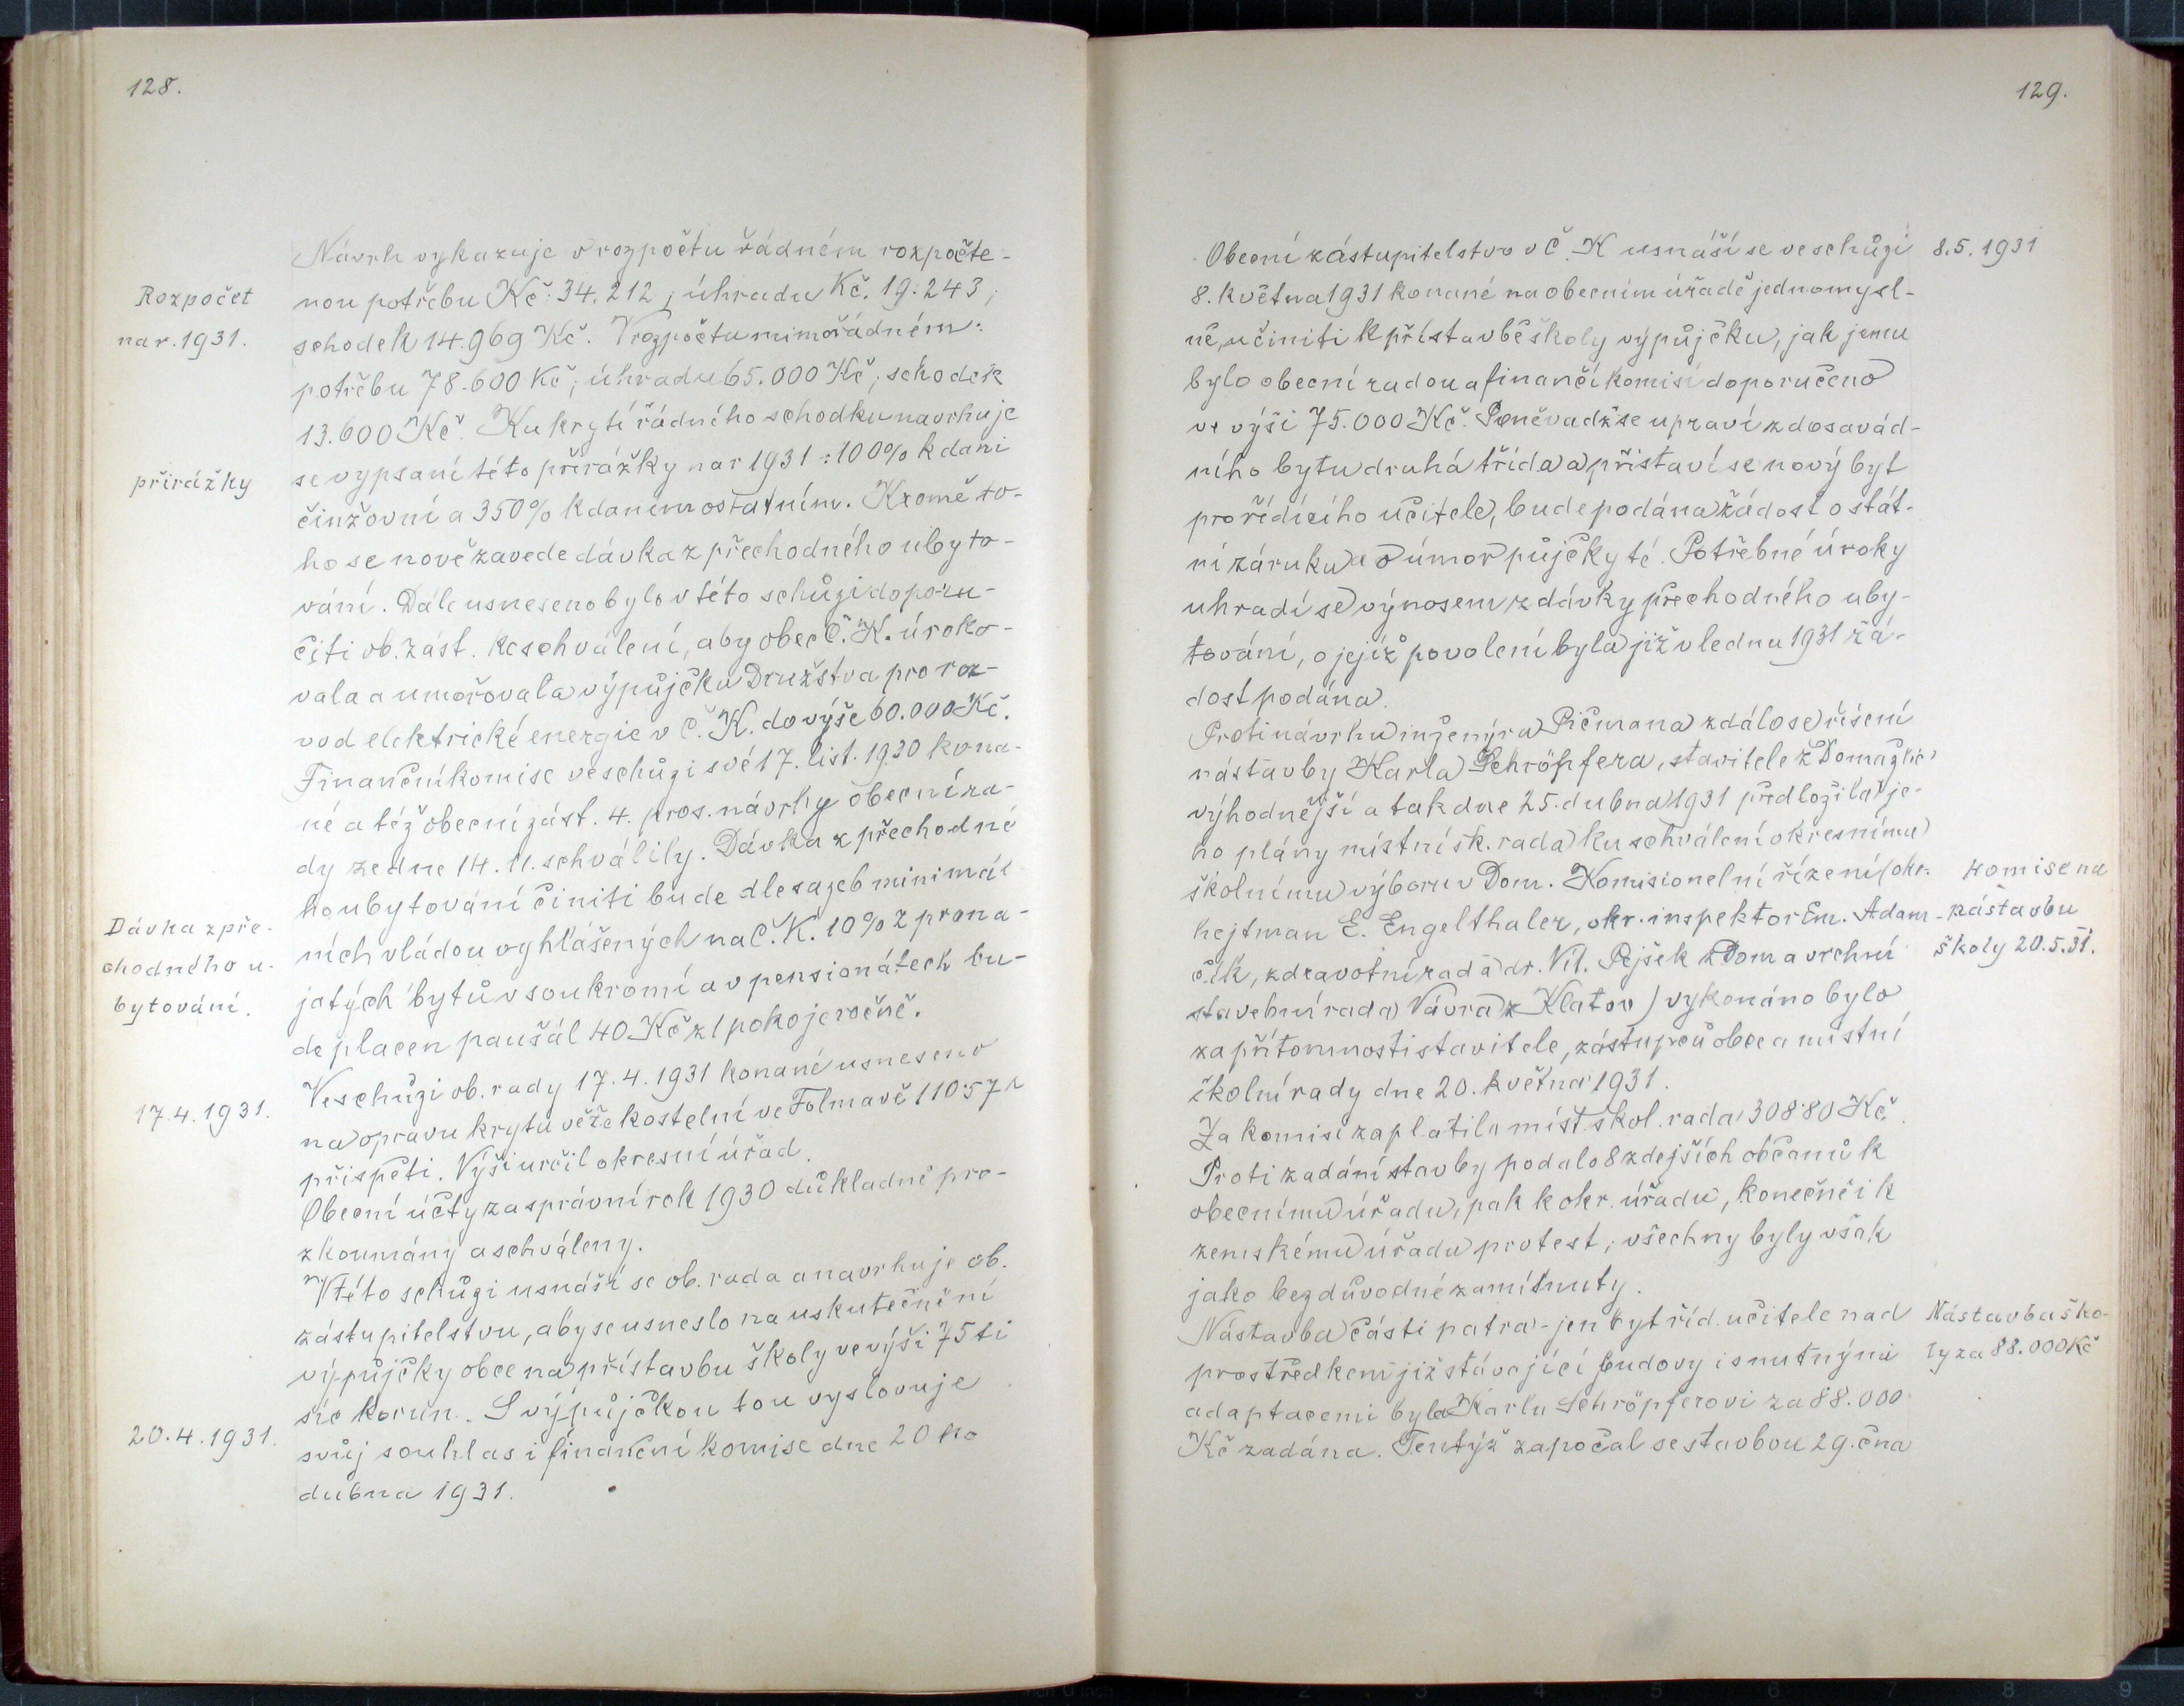 128.
Návrh vykazuje v rozpočtu řádném rozpočte-
Rozpočet
nou potřebu Kč: 34.212; úhradu Kč. 19.243;
na r. 1931.
schodek 14.969 Kč. V rozpočtu mimořádném:
potřebu 78.600 Kč; úhradu 65.000 Kč; schodek
13.600 Kč. Ku krytí řádného schodku navrhuje
přirážky
se vypsaní této přirážky na r 1931: 100% k dani
činžovní a 350% k daním ostatním. Kromě to-
ho se nově zavede dávka z přechodného ubyto-
vání. Dále usneseno bylo v této schůzi doporu-
čiti ob. zást. ke schválení, aby obec Č. K. úroko-
vala a umořovala výpůjčku Družstva pro roz-
vod elektrické energie v Č. K. do výše 60.000 Kč.
Finanční komise ve schůzi své 17. list. 1930 kona-
né a též obecní zást. 4. pros. návrhy obecní ra-
dy ze dne 14. 11. schválily. Dávka z přechodné
ho ubytování činiti bude dle sazeb minimál
Dávka z pře-
chodného u-
bytování.
ních vládou vyhlášených na Č. K. 10% z prona-
jatých bytů v soukromí a v pensionátech bu-
de placen paušál 40 Kč z 1 pokoje ročně.
Ve schůzi ob. rady 17. 4. 1931 konané usneseno
17. 4. 1931.
na opravu krytu věže kostelní ve Folmavě 110·57
přispěti. Výši určil okresní úřad.
Obecní účty za správní rok 1930 důkladně pro-
zkoumány a schváleny.
V této schůzi usnáší se ob. rada a navrhuje ob.
zástupitelstvu, aby se usneslo na uskutečnění
výpůjčky obce na přístavbu školy ve výši 75 ti
síc korun. S výpůjčkou tou vyslovuje
20. 4. 1931.
svůj souhlas i finanční komise dne 20 ho
dubna 1931.
129.
Obecní zástupitelstvo v Č. K usnáší se ve schůzi
8. 5. 1931
8. května 1931 konané na obecním úřadě jednomysl-
ně, učiniti k přístavbě školy výpůjčku, jak jemu
bylo obecní radou a finančí komisí doporučeno
ve výši 75.000 Kč. Poněvadž se upraví z dosavád-
ního bytu druhá třída a přistaví se nový byt
pro řídícího učitele, bude podána žádost o stát-
ní záruku a o úmor půjčky té. Potřebné úroky
uhradí se výnosem z dávky přechodného uby-
tování, o jejíž povolení byla již v lednu 1931 žá-
dost podána.
Proti návrhu inženýra Pičmana zdálo se řešení
nástavby Karla Schröpfera, stavitele z Domažlic
výhodnější a tak dne 25. dubna 1931 předložila je-
ho plány místní šk. rada ku schválení okresnímu
školnímu výboru v Dom. Komisionelní řízení (okr.
Komise na
hejtman E. Engelthaler, okr. inspektor Em. Adam-
nástavbu
čík, zdravotní rada dr. Vil. Pejšek z Dom a vrchní
školy 20. 5. 31.
stavební rada Vávra z Klatov) vykonáno bylo
za přítomnosti stavitele, zástupců obce a místní
školní rady dne 20. května 1931.
Za komisi zaplatila míst. škol. rada 308·80 Kč.
Proti zadání stavby podalo 8 zdejších občanů k
obecnímu úřadu, pak k okr. úřadu, konečně i k
zemskému úřadu protest; všechny byly však
jako bezdůvodné zamítnuty.
Nástavba části patra - jen byt říd. učitele nad
Nástavba ško-
prostředkem již stávající budovy i s nutnými
ly za 88.000 Kč
adaptacemi byla Karlu Schröpferovi za 88.000
Kč zadána. Tentýž započal se stavbou 29. čna